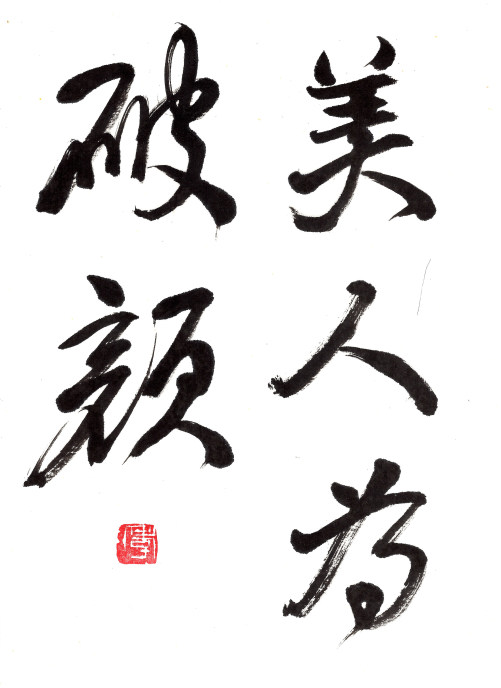 美人為
破顔